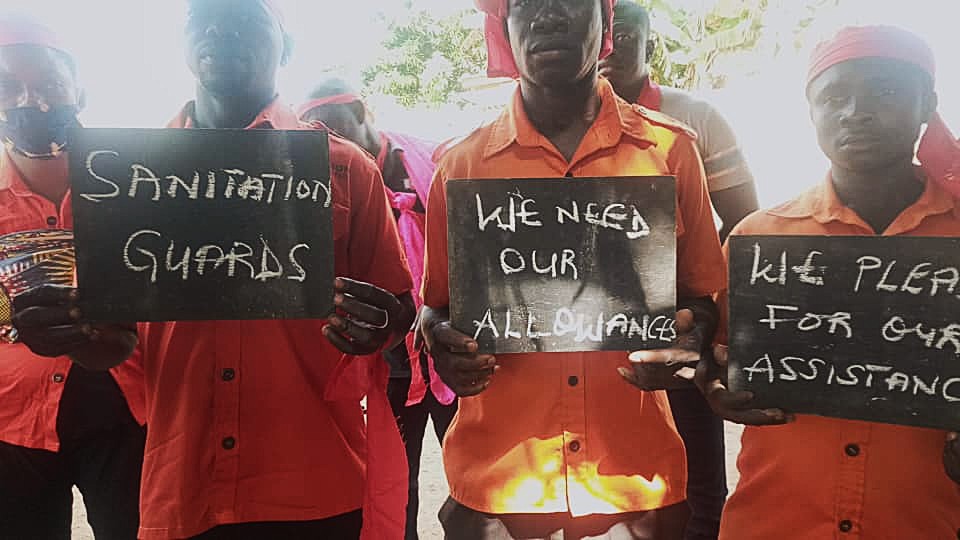 SANITATION
GUARDS
WE NEED
OUR
ALLOWANCES
WE PLEA
FOR OUR
ASSISTANC